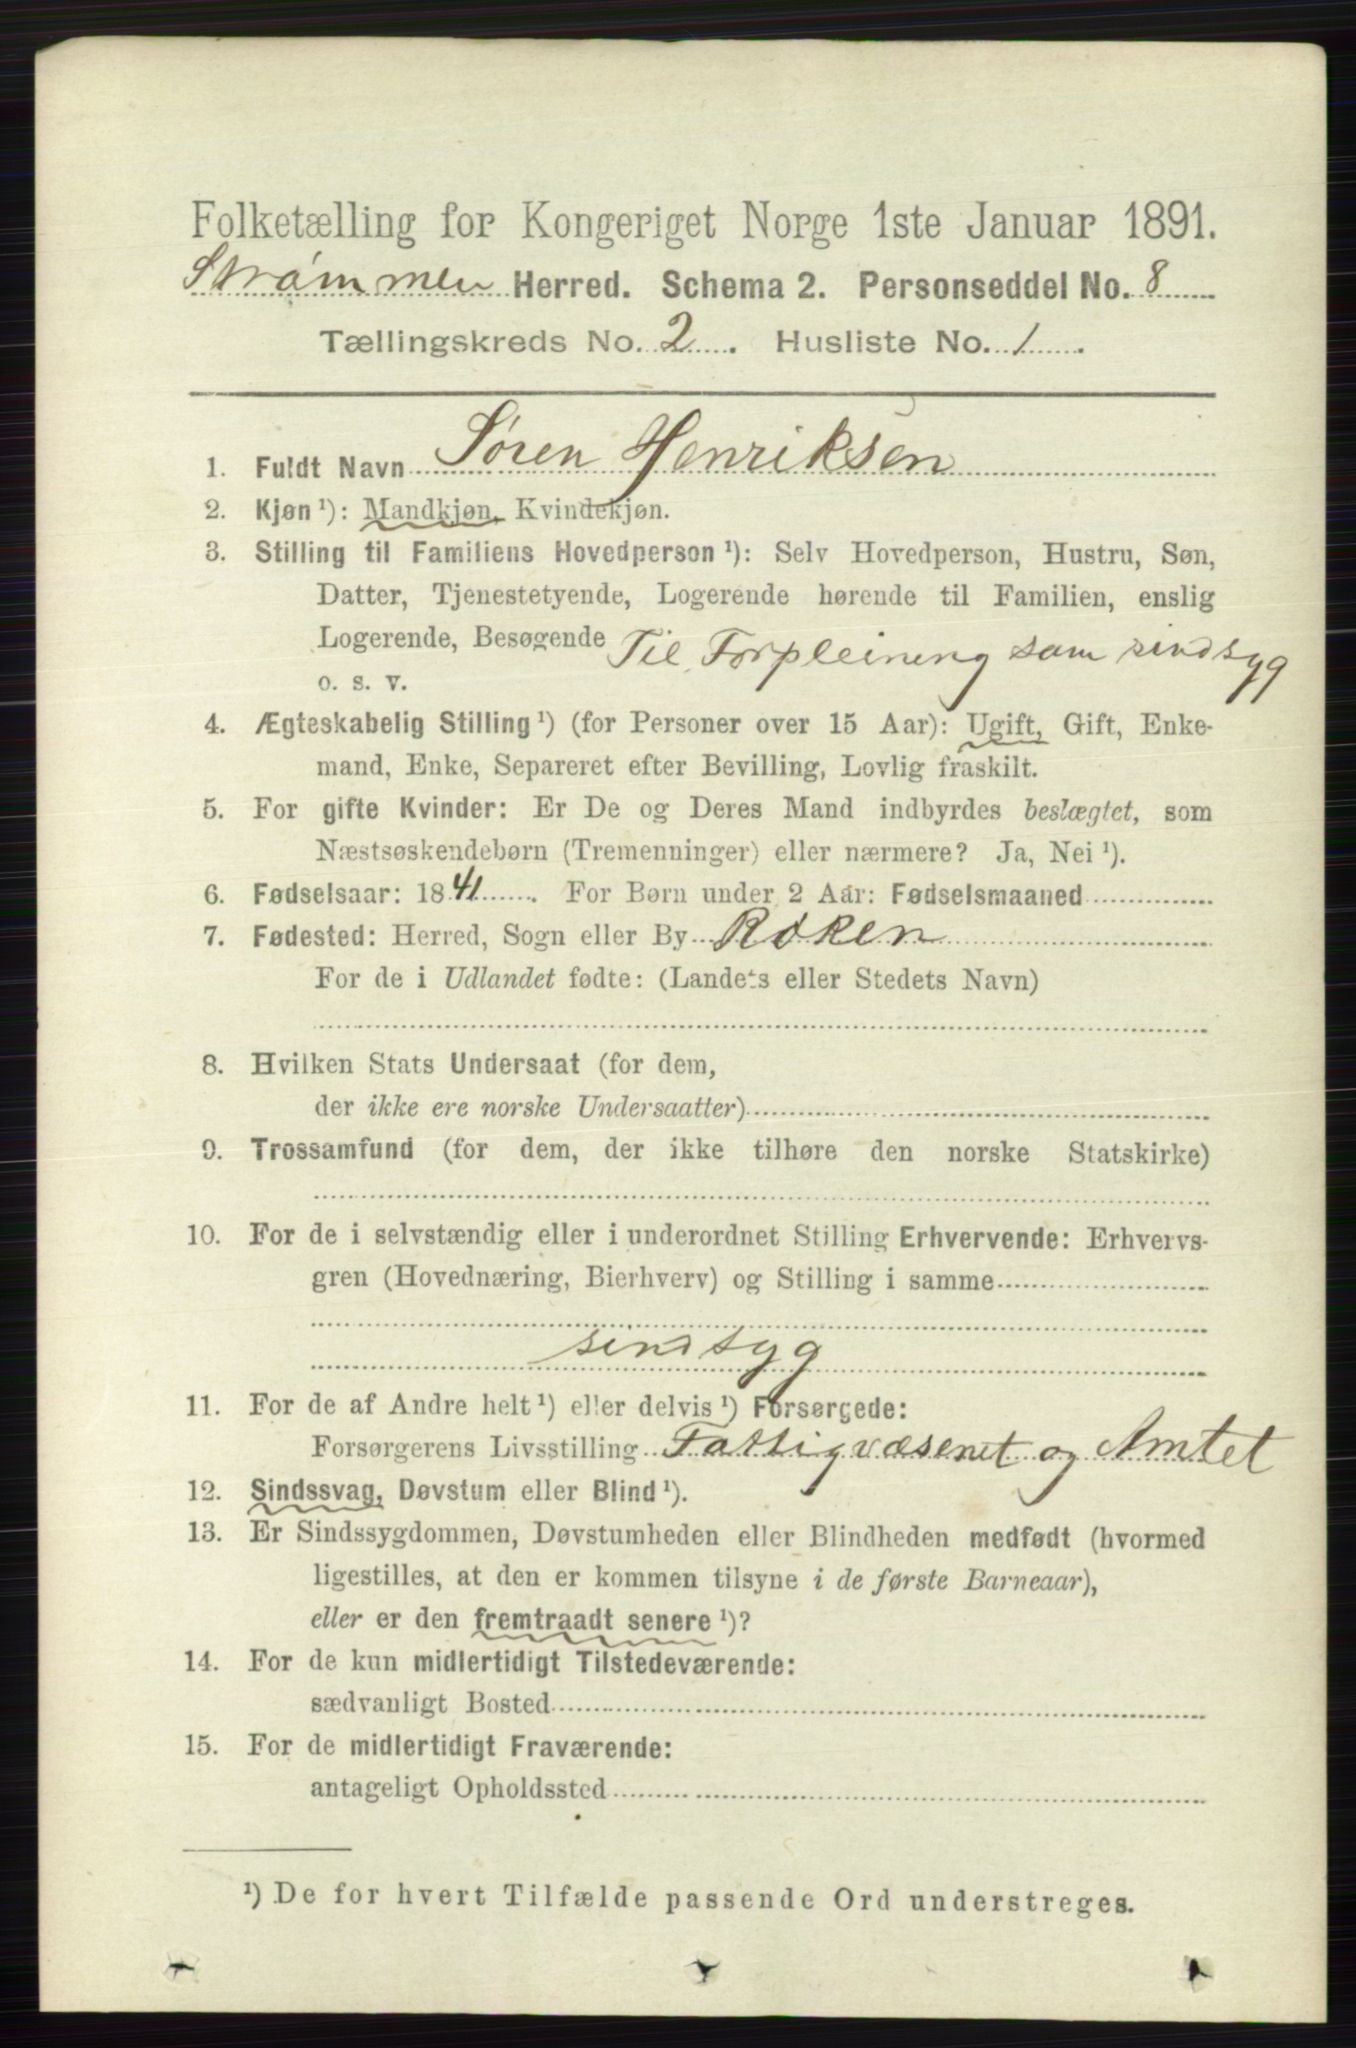 Folketælling for Kongeriget Norge 1ste Januar 1891.
Strømmen Herred. Schema 2. Personseddel No. 8
Tællingskreds No. 2. Husliste No. 1.
1. Fuldt Navn Søren Henriksen
2. Kjøn ¹): Mandkjøn, Kvindekjøn.
3. Stilling til Familiens Hovedperson ¹): Selv Hovedperson, Hustru, Søn,
Datter, Tjenestetyende, Logerende hørende til Familien, enslig
Logerende, Besøgende Til Forpleining som sindsyg
o. s. v.
4. Ægteskabelig Stilling ¹) (for Personer over 15 Aar): Ugift, Gift, Enke-
mand, Enke, Separeret efter Bevilling, Lovlig fraskilt.
5. For gifte Kvinder: Er De og Deres Mand indbyrdes beslægtet, som
Næstsøskendebørn (Tremenninger) eller nærmere? Ja, Nei ¹).
6. Fødselsaar: 1841. For Børn under 2 Aar: Fødselsmaaned
7. Fødested: Herred, Sogn eller By Røken
For de i Udlandet fødte: (Landets eller Stedets Navn)
8. Hvilken Stats Undersaat (for dem,
der ikke ere norske Undersaatter)
9. Trossamfund (for dem, der ikke tilhøre den norske Statskirke)
10. For de i selvstændig eller i underordnet Stilling Erhvervende: Erhvervs-
gren (Hovednæring, Bierhverv) og Stilling i samme
sindsyg
11. For de af Andre helt ¹) eller delvis ¹) Forsørgede:
Forsørgerens Livsstilling Fattigvæsenet og Amtet
12. Sindssvag, Døvstum eller Blind ¹).
13. Er Sindssygdommen, Døvstumheden eller Blindheden medfødt (hvormed
ligestilles, at den er kommen tilsyne i de første Barneaar),
eller er den fremtraadt senere ¹)?
14. For de kun midlertidigt Tilstedeværende:
sædvanligt Bosted
15. For de midlertidigt Fraværende:
antageligt Opholdssted
¹) De for hvert Tilfælde passende Ord understreges.